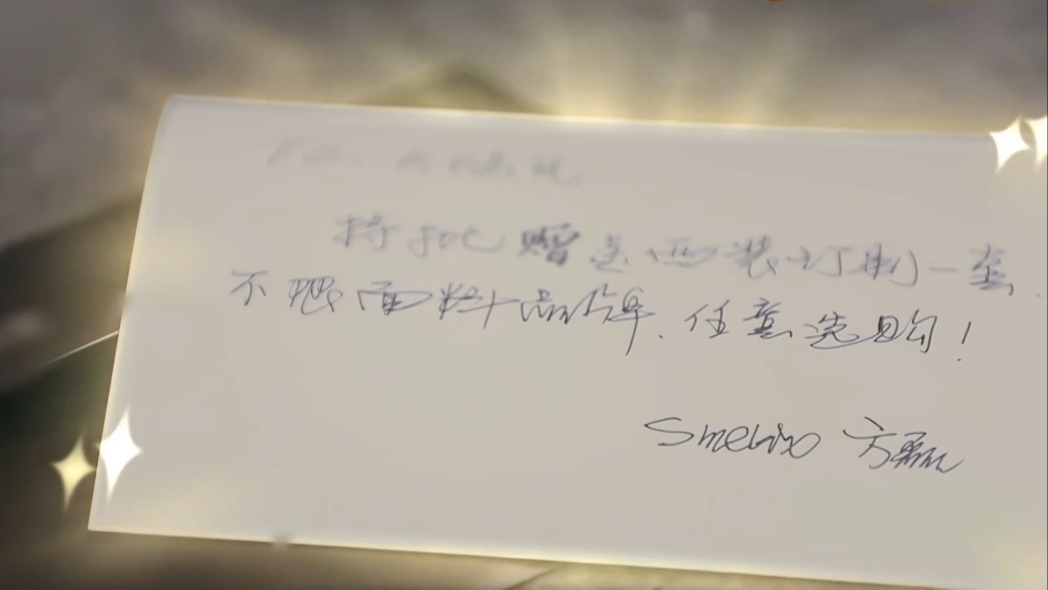 特批赠送西装订制一套.
不限面料品牌.任意选购!
方